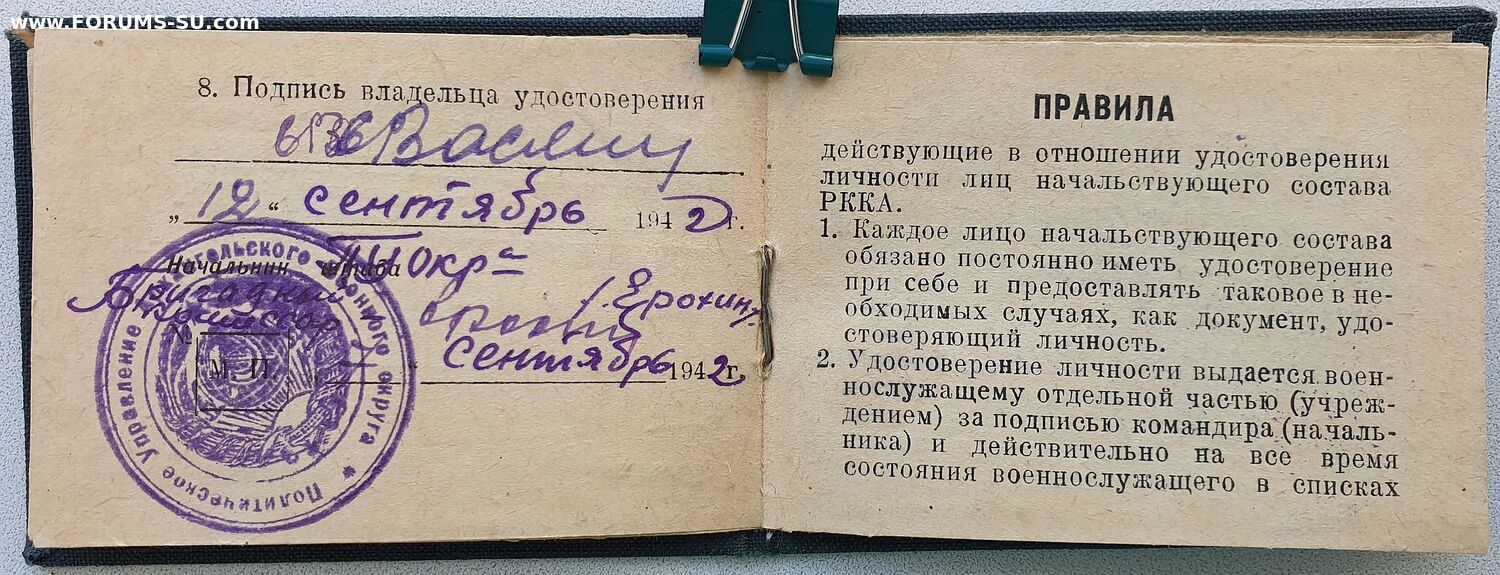 www.FORUMS-SU.com
8. Подпись владельца удостоверения
„12“ сентябрь 1942 г.
Начальник штаба ПУокра
Бригадный
комиссар /Ерохин/
№
М. П.
сентябрь 1942 г.
Политическое Управление военного округа
ПРАВИЛА
действующие в отношении удостоверения
личности лиц начальствующего состава
РККА.
1. Каждое лицо начальствующего состава
обязано постоянно иметь удостоверение
при себе и предоставлять таковое в не-
обходимых случаях, как документ, удо-
стоверяющий личность.
2. Удостоверение личности выдается воен-
нослужащему отдельной частью (учреж-
дением) за подписью командира (началь-
ника) и действительно на все время
состояния военнослужащего в списках